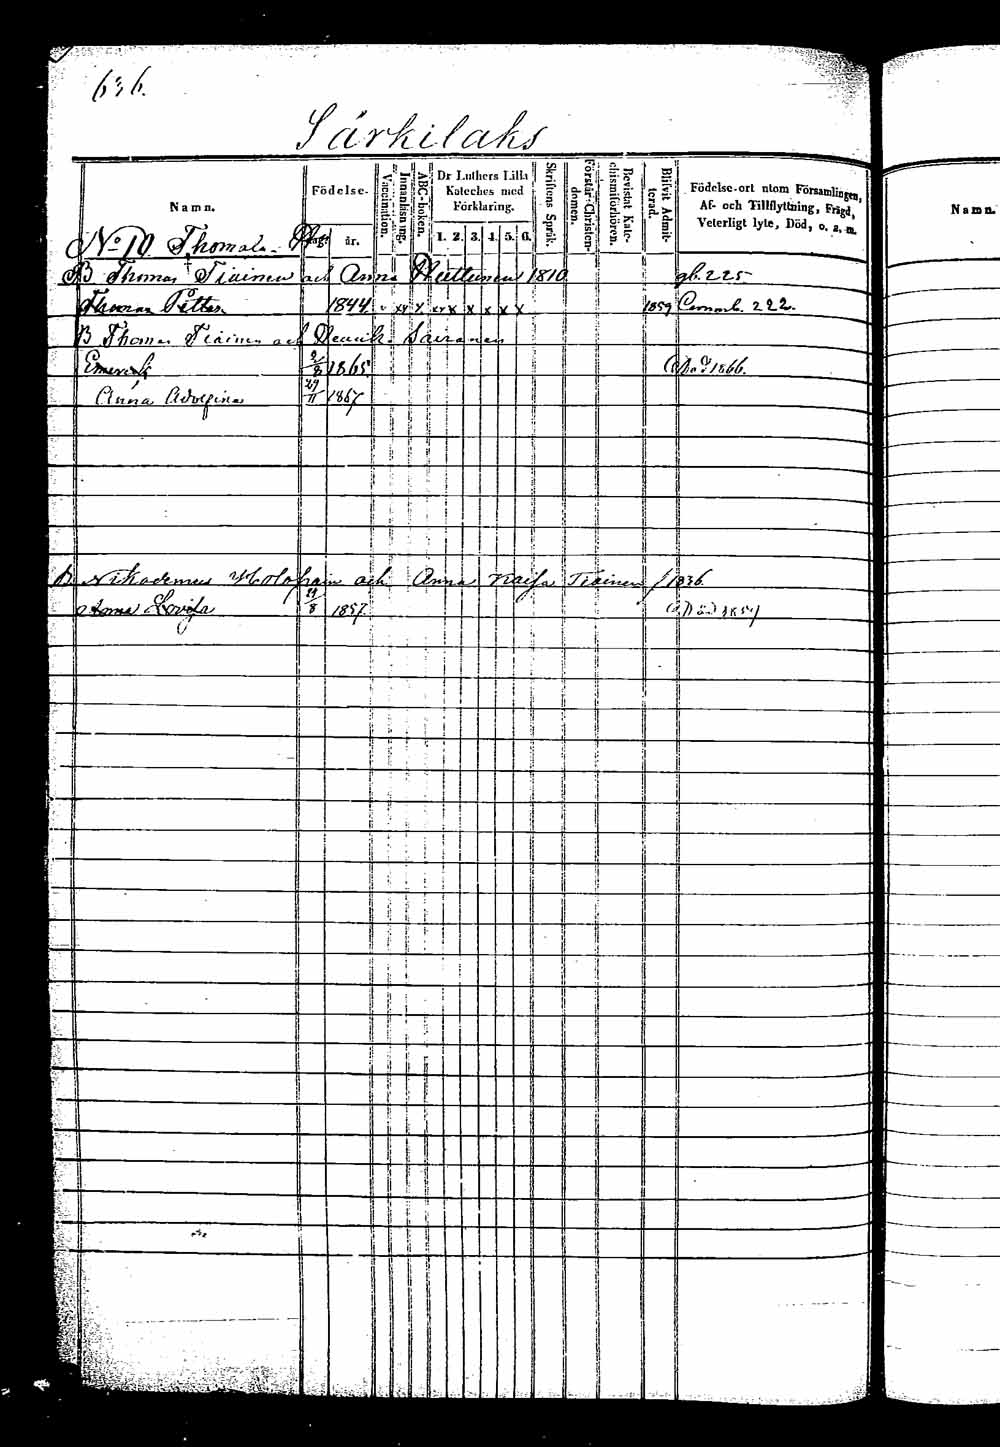 636.
Särkilaks
Namn.
Födelse-
Dag. år.
Vaccination.
Innanläsning.
ABC-boken.
Dr Luthers Lilla Kateches med Förklaring.
1. 2. 3. 4. 5. 6.
Skriftens Språk.
Förstår Christendomen.
Bevistat Katechismiförhören.
Blifvit Admitterad.
Födelse-ort utom Församlingen,
Af- och Tillflyttning, Frägd,
Veterligt lyte, Död, o. s. m.
Namn.
No 10 Thomala
B Thomas Tiainen och Anna 1810 gb. 225
Thomas Petter 1844 x x x x x x 1859 222
B Thomas Tiainen och Henrik.
2/8 1865 1866.
Anna Adolfina 29/11 1867
B Nikodemus och Anna Tiainen f 1836
Anna Lovisa 29/8 1857 Död 1857